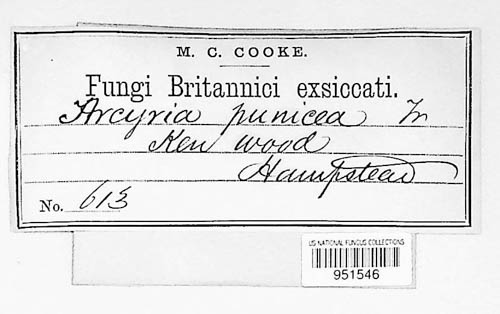 M. C. COOKE.
Fungi Britannici exsiccati.
Arcyria punicea Fr
Ken wood
Hampstead
No. 613
US NATIONAL FUNGUS COLLECTIONS
951546